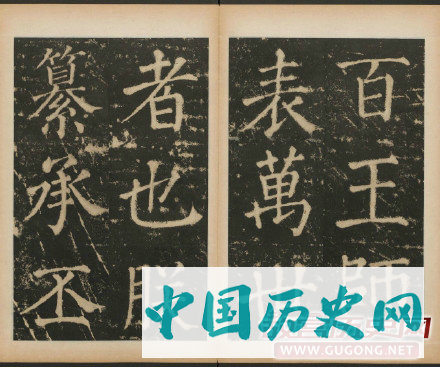 百王師
表萬世
者也朕
纂承丕
中国历史网
WWW.GUGONG.NET